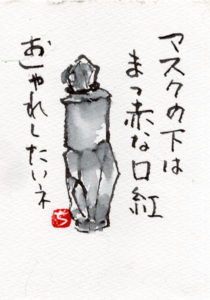 マスクの下は
まっ赤な口紅
おしゃれしたいネ
ち